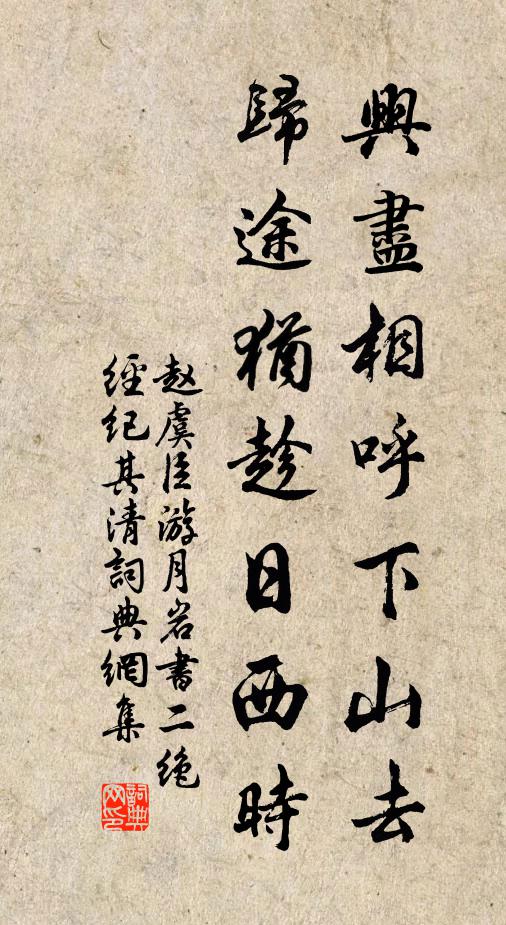 興盡相呼下山去
歸途猶趁日西時
赵虞臣游月岩書二絶
經纪其清詞典網集
詞典网印